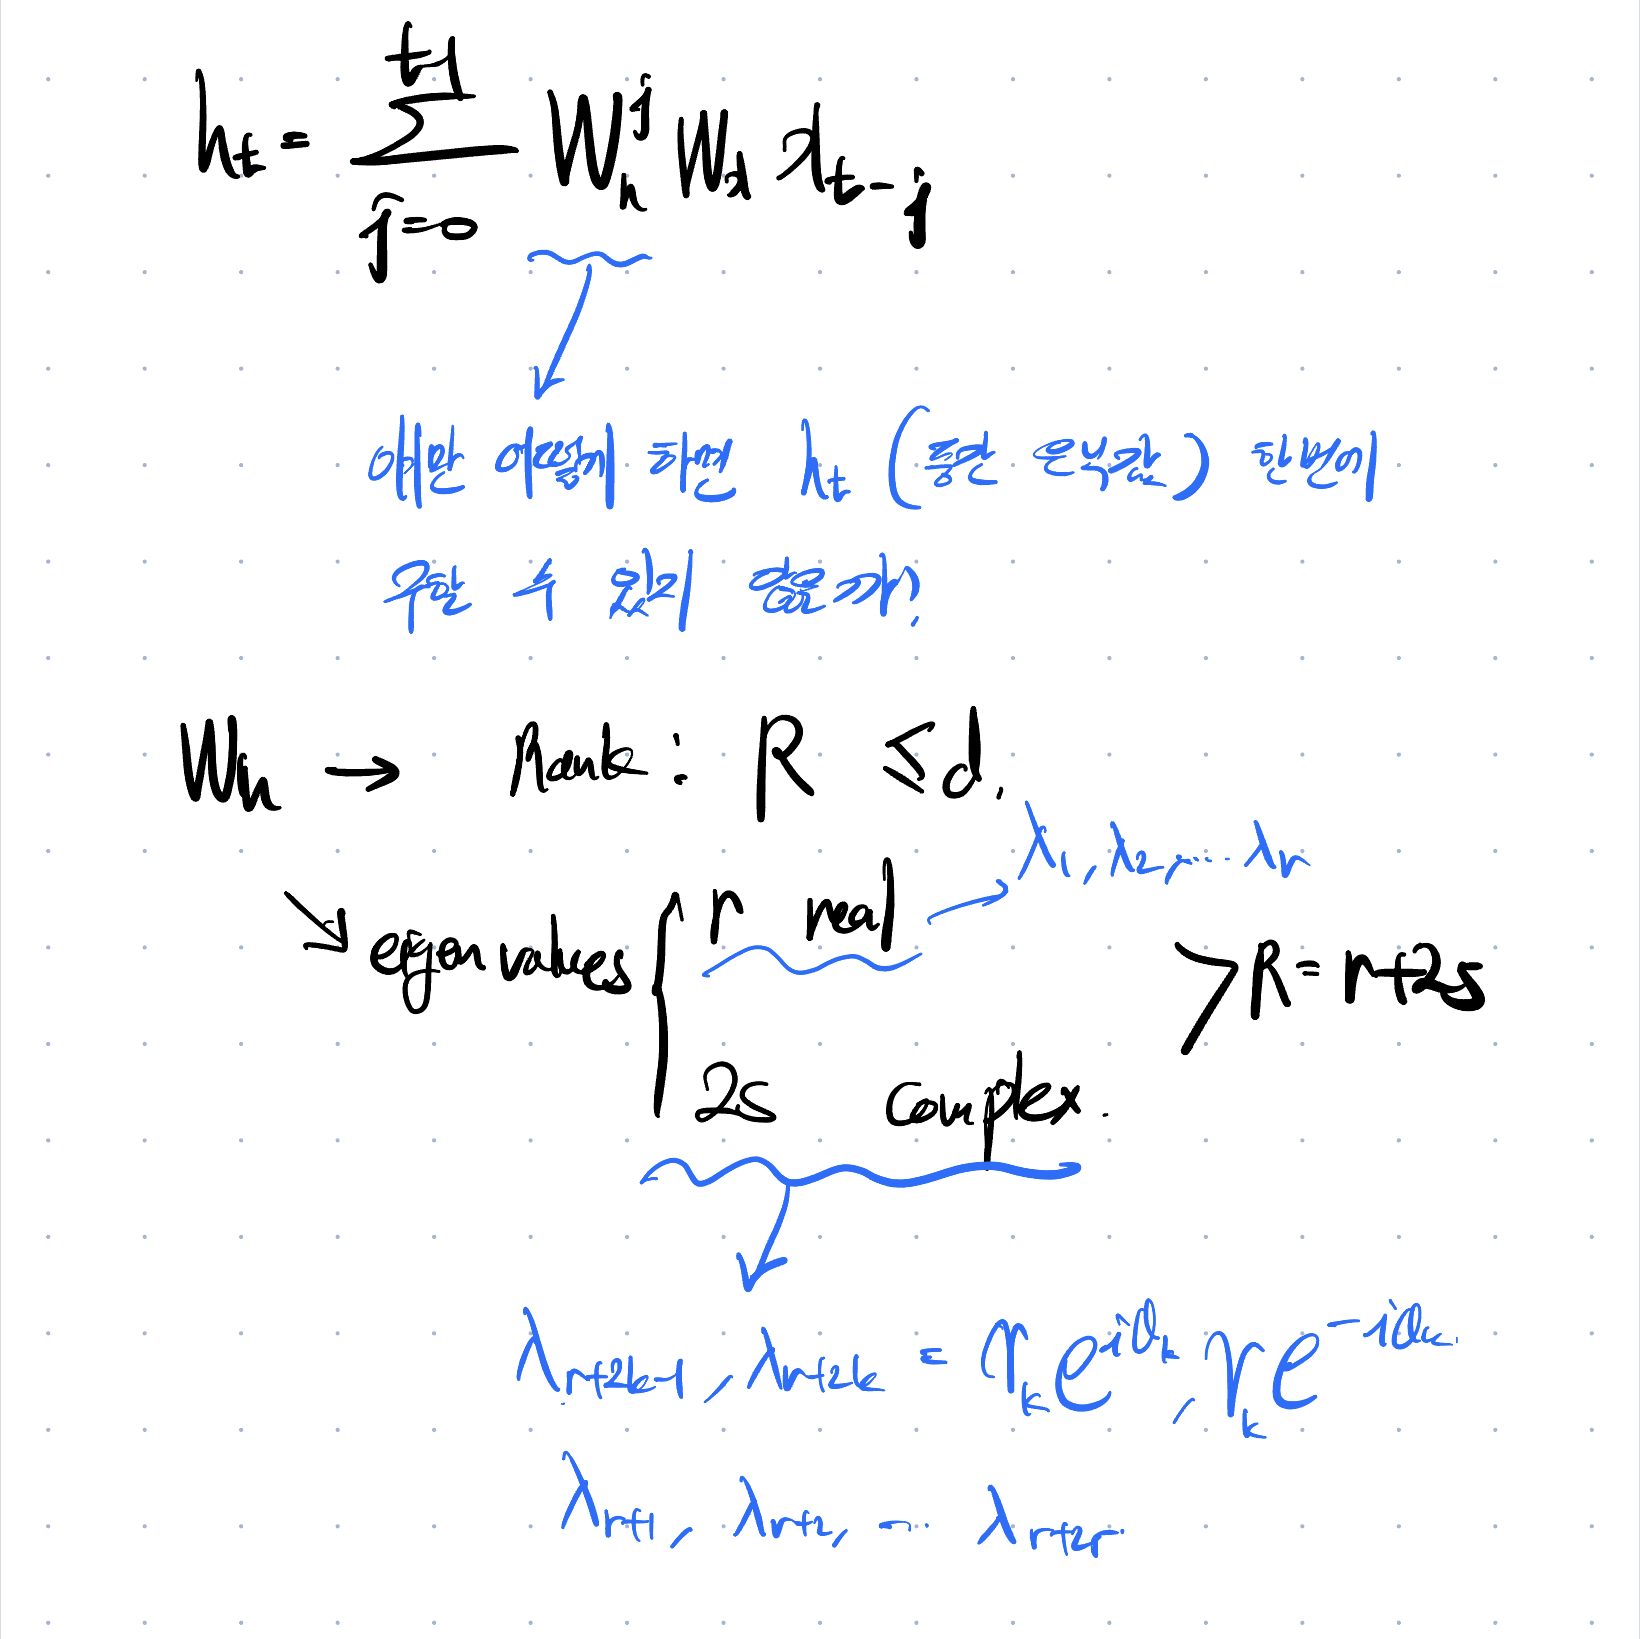 h_t = \sum_{j=0}^{t-1} W_h^j W_x x_{t-j}
얘만 어떻게 하면 h_t (중간 은닉값) 한번에
구할 수 있지 않을까?
W_h → Rank : R ≤ d.
λ_1, λ_2, ... λ_r
eigenvalues { r real
> R = r+2s
2s complex.
λ_{r+2k-1}, λ_{r+2k} = γ_k e^{iθ_k}, γ_k e^{-iθ_k}.
λ_{r+1}, λ_{r+2}, ... λ_{r+2r}.